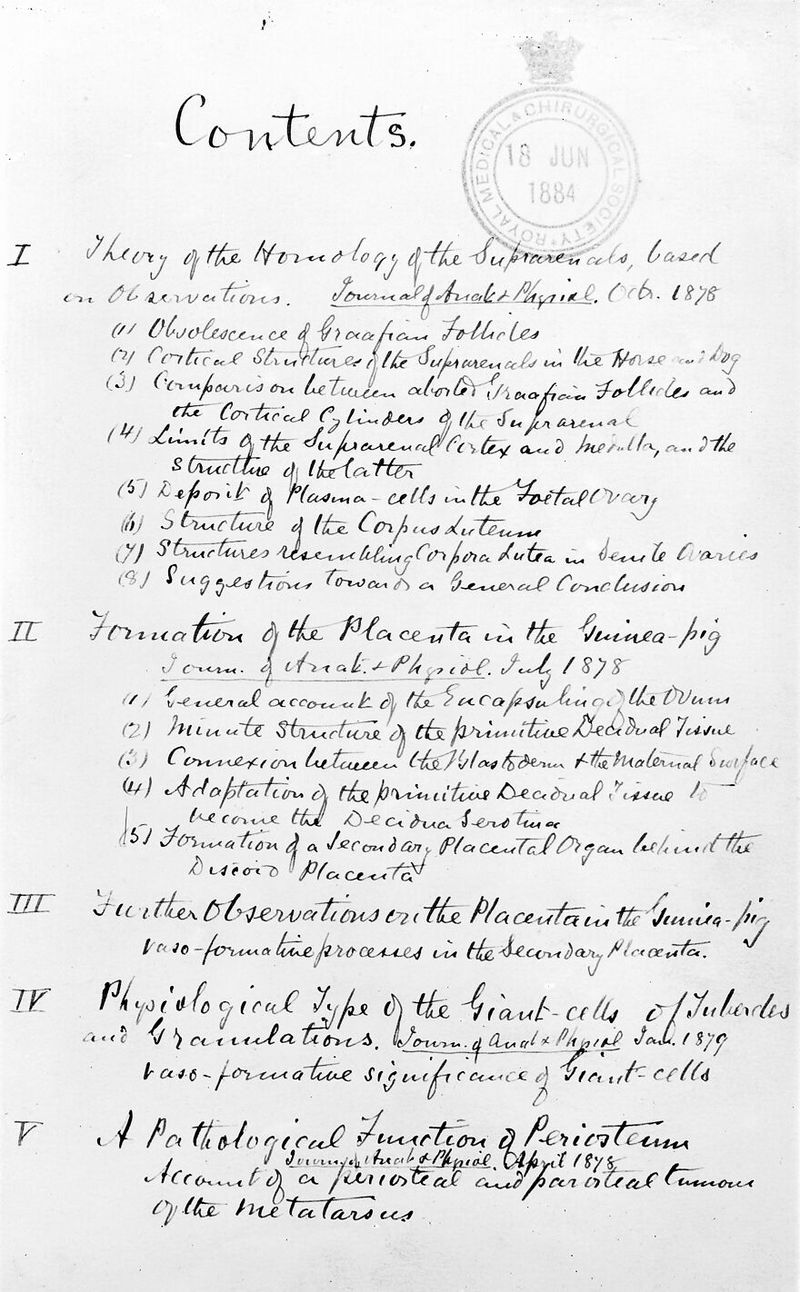 Contents.
ROYAL MEDICAL & CHIRURGICAL SOCIETY
18 JUN
1884
I Theory of the Homology of the Suprarenals, based
on Observations. Journal of Anat. & Physiol. Octr. 1878
(1) Obsolescence of Graafian Follicles
(2) Cortical Structures of the Suprarenals in the Horse and Dog
(3) Comparison between aborted Graafian Follicles and
the Cortical Cylinders of the Suprarenal
(4) Limits of the Suprarenal Cortex and Medulla, and the
Structure of the latter
(5) Deposit of Plasma-cells in the Foetal Ovary
(6) Structure of the Corpus Luteum
(7) Structures resembling Corpora Lutea in Senile Ovaries
(8) Suggestions towards a General Conclusion
II Formation of the Placenta in the Guinea-pig
Journ. of Anat. & Physiol. July 1878
(1) General account of the Encapsuling of the Ovum
(2) Minute Structure of the primitive Decidual Tissue
(3) Connexion between the Blastoderm & the Maternal Surface
(4) Adaptation of the primitive Decidual Tissue to
become the Decidua Serotina
(5) Formation of a Secondary Placental Organ behind the
Discoid Placenta
III Further Observations on the Placenta in the Guinea-pig
Vaso-formative processes in the Secondary Placenta.
IV Physiological Type of the Giant-cells of Tubercles
and Granulations. Journ. of Anat & Physiol Jan. 1879
Vaso-formative significance of Giant-cells
V A Pathological Function of Periosteum
Journ. of Anat & Physiol. April 1878
Account of a periosteal and parosteal tumour
of the Metatarsus